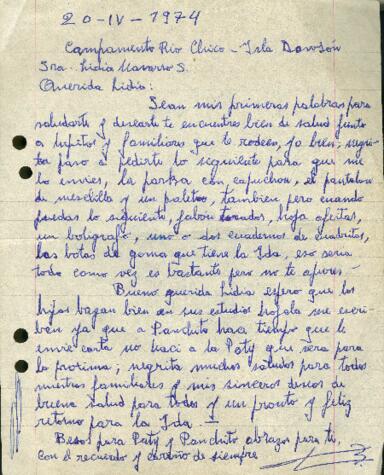 20-IV-1974
Campamento Río Chico - Isla Dawson
Sra. Lidia Navarro S.
Querida Lidia:
Sean mis primeras palabras para
saludarte y desearte te encuentres bien de salud junto
a hijitos y familiares que te rodeen, yo bien; negri-
ta paso a pedirte lo siguiente para que me
lo envíes, la parka con capuchon, el pantalon
de mesclilla y un paletoc, tambien pero cuando
puedas lo siguiente, jabon hoja afeitar,
un boligrafo, uno o dos cuadernos de cuadritos,
las botas de goma que tiene la Ida, eso seria
todo como vez es bastante pero no te apures.-
Bueno querida Lidia espero que los
hijos bayan bien en sus estudios hojala me escri-
ban ya que a Panchito hace tiempo que le
envie carta no haci a la Paty que sera para
la proxima; negrita muchos saludos para todos
nuestros familiares y mis sinceros deseos de
buena salud para todos y un pronto y feliz
retorno para la Ida.-
Besos para Paty y Panchito abrazos para ti,
con el recuerdo y cariño de siempre